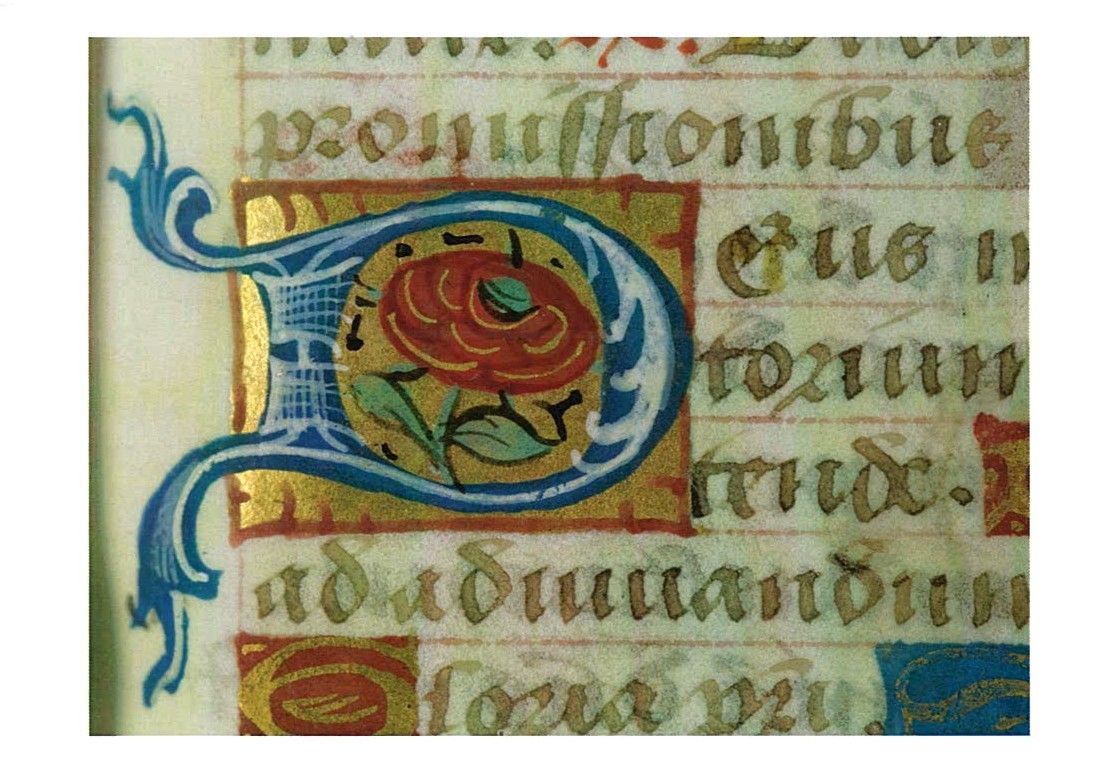 promissionibus
DEus in
torium
tende.
ad adiuuandum
Gloria pri. S